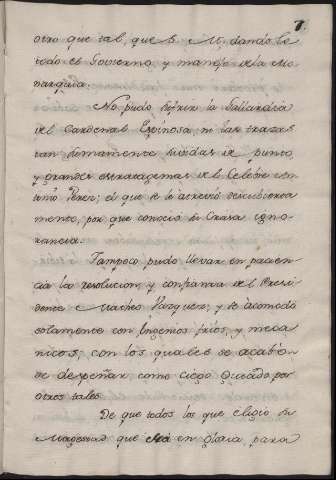 7.
otro que tal, que S. M. dandole
todo el Govierno, y manejo de la Mo-
narquia.
No pudo sufrir la Gallardia
del Cardenal Espinosa, ni las trazas
tan sumamente subidas de punto,
y grandes estratagemas de el Celebre An-
tonio Perez; el que se le atrevió descubierta
mente, por que conoció su Crasa igno-
rancia.
Tampoco pudo llevar en pacien-
cia la resolucion, y confianza del Presi-
dente Matheo Vazquez, y se acomodó
solamente con Ingenios frios, y meca-
nicos, con los quales se acabó
de despeñar como ciego guiado por
otros tales.
De que todos los que eligió su
Magestad que está en gloria para